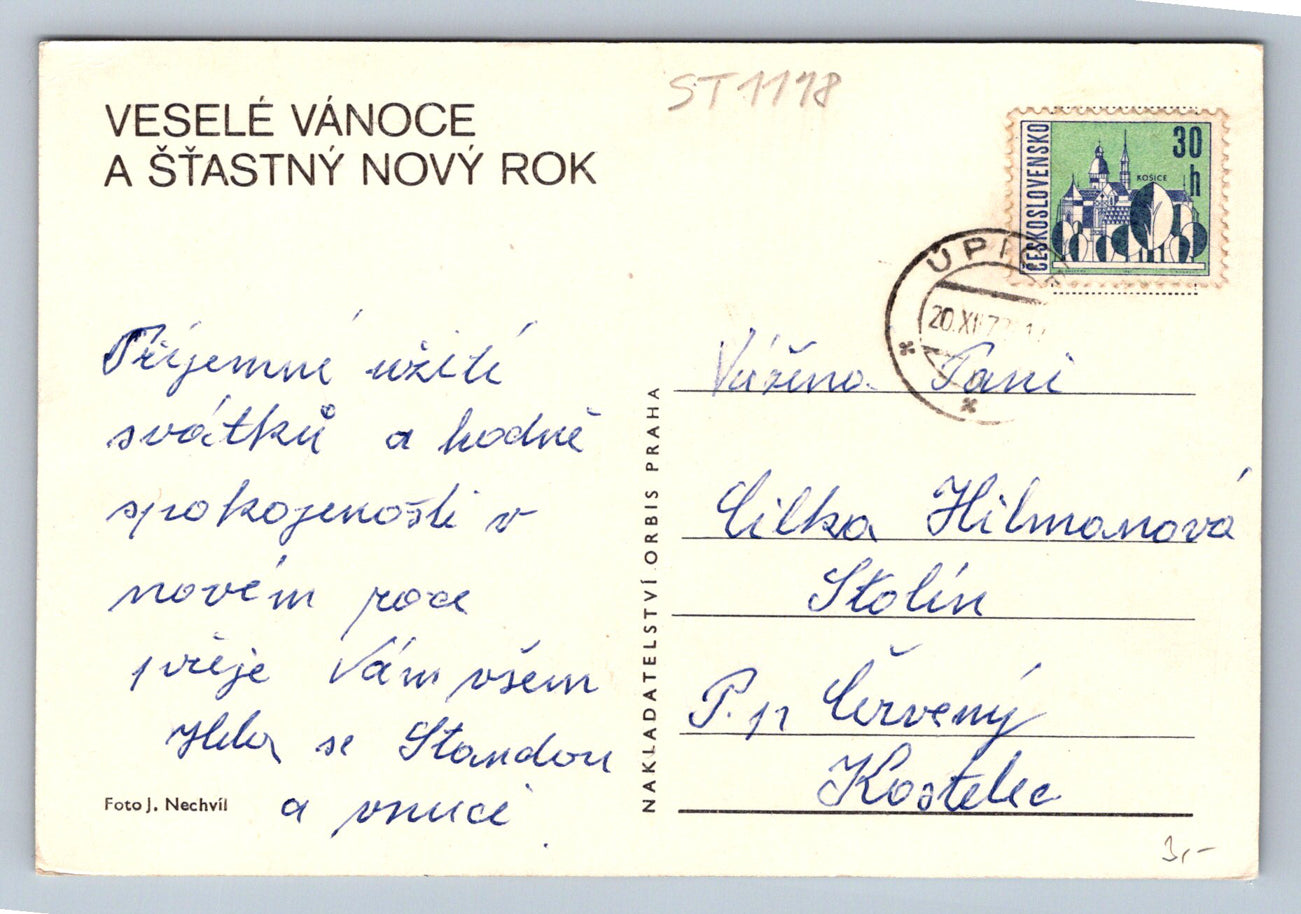 VESELÉ VÁNOCE
A ŠŤASTNÝ NOVÝ ROK
ST 1118
ČESKOSLOVENSKO
30
h
KOŠICE
20.XII.7
Příjemné užití
svátků a hodně
spokojenosti v
novém roce
přeje Vám všem
se Standou
a vnuci
Foto J. Nechvíl
NAKLADATELSTVÍ ORBIS PRAHA
Vážena Paní
Cilka Hilmanová
Stolín
P. p Červený
Kostelec
3,-